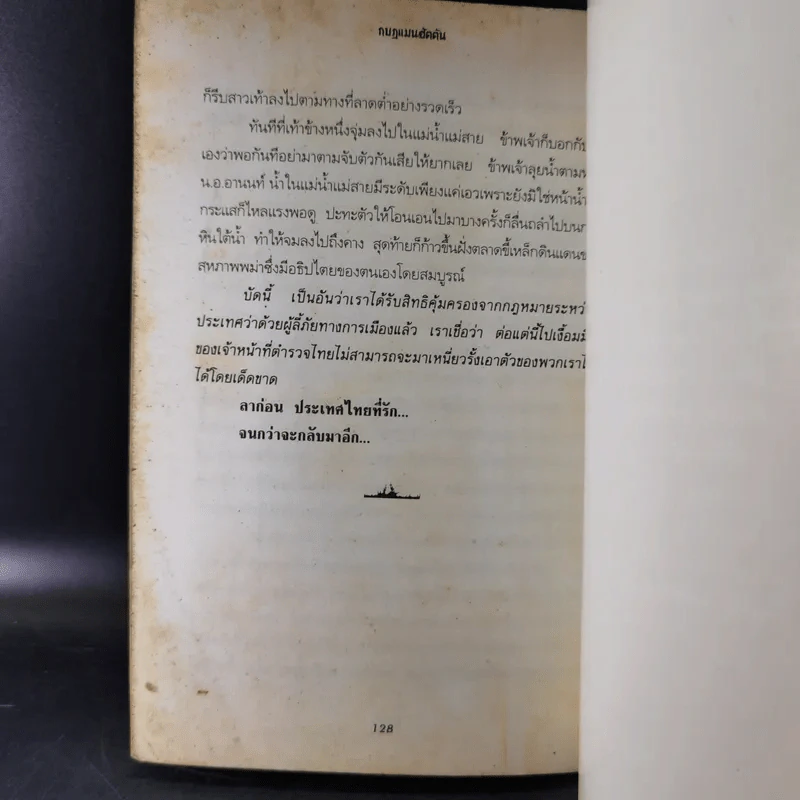 กบฏแมนฮัตตัน
ก็รีบสาวเท้าลงไปตามทางที่ลาดต่ำอย่างรวดเร็ว
ทันทีที่เท้าข้างหนึ่งจุ่มลงไปในแม่น้ำแม่สาย ข้าพเจ้าก็บอกกับ
เองว่าพอกันทีอย่ามาตามจับตัวกันเสียให้ยากเลย ข้าพเจ้าลุยน้ำตาม
น.อ.อานนท์ น้ำในแม่น้ำแม่สายมีระดับเพียงแค่เอวเพราะยังมิใช่หน้าน้ำ
กระแสก็ไหลแรงพอดู ปะทะตัวให้โอนเอนไปมาบางครั้งก็ลื่นถลำไปบน
หินใต้น้ำ ทำให้จมลงไปถึงคาง สุดท้ายก็ก้าวขึ้นฝั่งตลาดขี้เหล็กดินแดน
สหภาพพม่าซึ่งมีอธิปไตยของตนเองโดยสมบูรณ์
บัดนี้ เป็นอันว่าเราได้รับสิทธิคุ้มครองจากกฎหมายระหว่
ประเทศว่าด้วยผู้ลี้ภัยทางการเมืองแล้ว เราเชื่อว่า ต่อแต่นี้ไปเงื้อมมื
ของเจ้าหน้าที่ตำรวจไทยไม่สามารถจะมาเหนี่ยวรั้งเอาตัวของพวกเราไ
ได้โดยเด็ดขาด
ลาก่อน ประเทศไทยที่รัก...
จนกว่าจะกลับมาอีก...
128